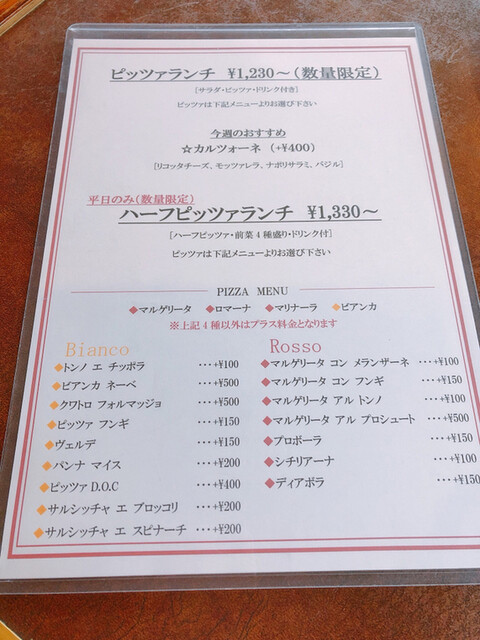 ピッツァランチ ¥1,230～(数量限定)
[サラダ・ピッツァ・ドリンク付き]
ピッツァは下記メニューよりお選び下さい
今週のおすすめ
☆カルツォーネ (+¥400)
[リコッタチーズ、モッツァレラ、ナポリサラミ、バジル]
平日のみ(数量限定)
ハーフピッツァランチ ¥1,330～
[ハーフピッツァ・前菜4種盛り・ドリンク付]
ピッツァは下記メニューよりお選び下さい
PIZZA MENU
◆マルゲリータ ◆ロマーナ ◆マリナーラ ◆ビアンカ
※上記4種以外はプラス料金となります
Bianco
◆トンノ エ チッポラ ･･･+¥100
◆ビアンカ ネーベ ･･･+¥500
◆クワトロ フォルマッジョ ･･･+¥500
◆ピッツァ フンギ ･･･+¥150
◆ヴェルデ ･･･+¥150
◆パンナ マイス ･･･+¥200
◆ピッツァ D.O.C ･･･+¥400
◆サルシッチャ エ ブロッコリ ･･･+¥200
◆サルシッチャ エ スピナーチ ･･･+¥200
Rosso
◆マルゲリータ コン メランザーネ ･･･+¥100
◆マルゲリータ コン フンギ ･･･+¥150
◆マルゲリータ アル トンノ ･･･+¥100
◆マルゲリータ アル プロシュート ･･･+¥500
◆プロボーラ ･･･+¥150
◆シチリアーナ ･･･+¥100
◆ディアボラ ･･･+¥150